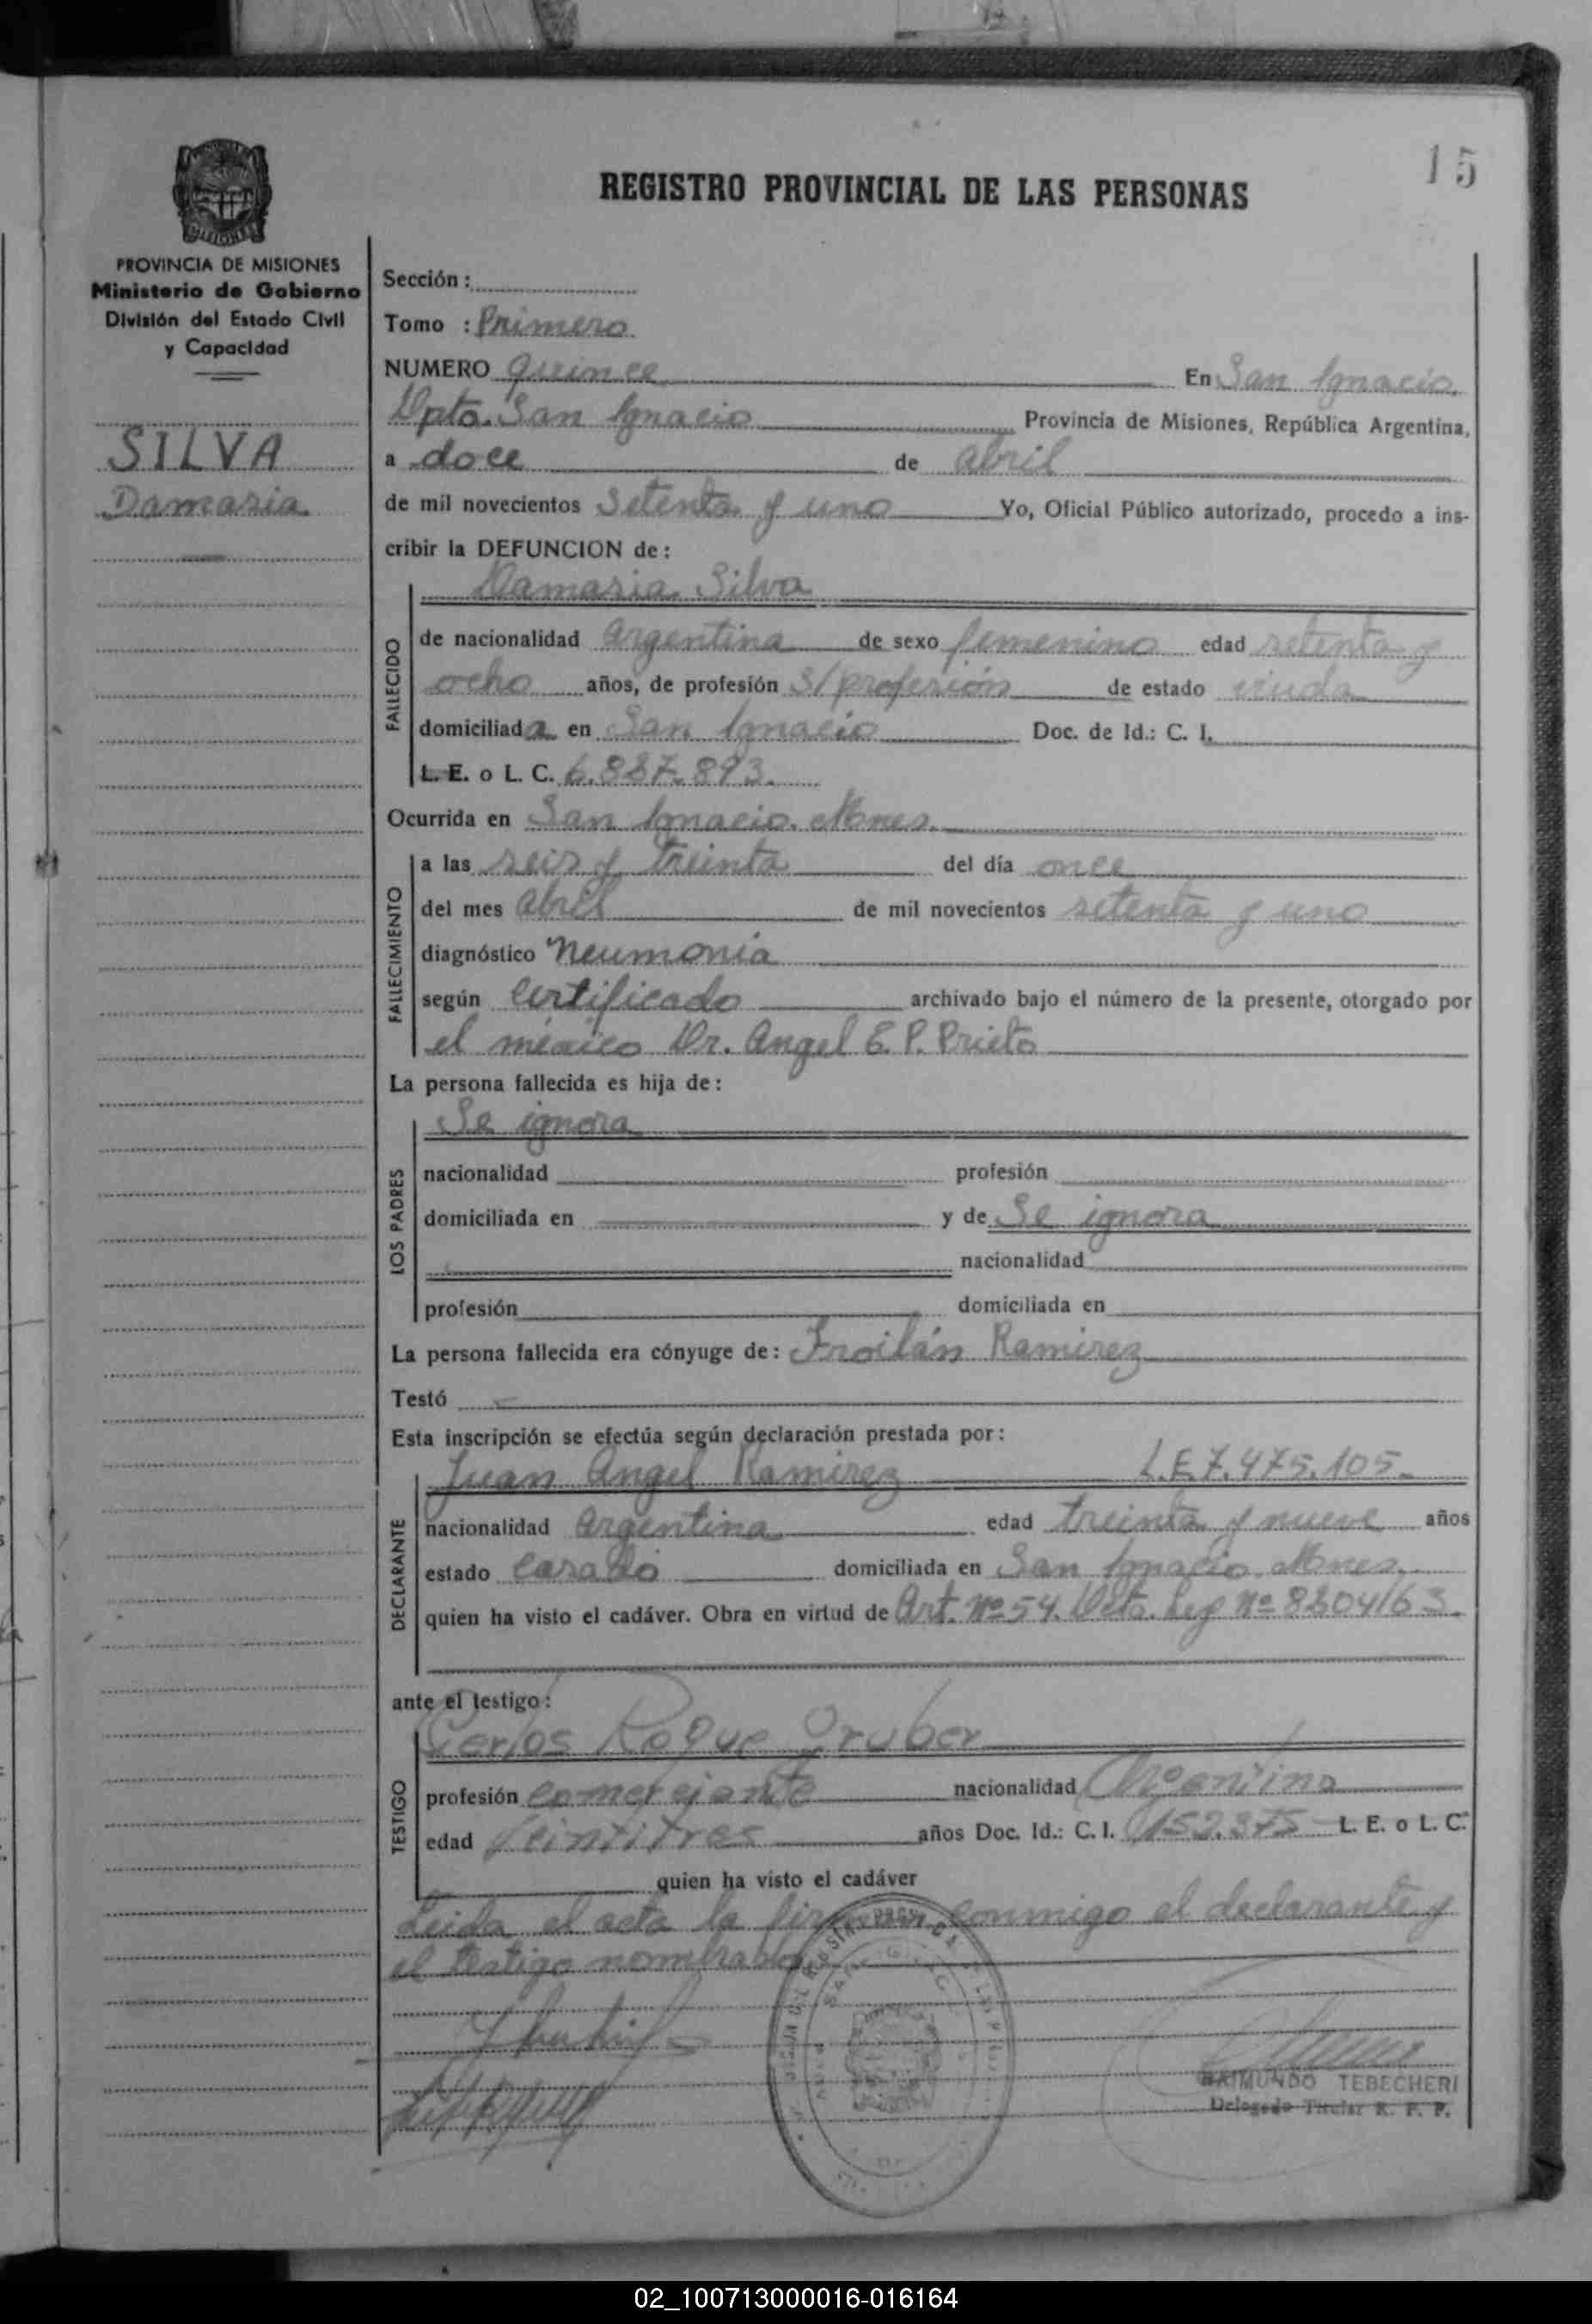 15
REGISTRO PROVINCIAL DE LAS PERSONAS
MISIONES
PROVINCIA DE MISIONES
Ministerio de Gobierno
División del Estado Civil
y Capacidad
SILVA
Damasia
Sección :
Tomo : Primero
NUMERO quince En San Ignacio
Dpto. San Ignacio Provincia de Misiones, República Argentina,
a doce de abril
de mil novecientos setenta y uno Yo, Oficial Público autorizado, procedo a ins-
cribir la DEFUNCION de :
FALLECIDO
Damasia Silva
de nacionalidad argentina de sexo femenino edad setenta y
ocho años, de profesión s/profesión de estado viuda
domiciliada en San Ignacio Doc. de Id.: C. I.
L. E. o L. C. 6.887.893.
Ocurrida en San Ignacio. Mnes.
FALLECIMIENTO
a las seis y treinta del día once
del mes abril de mil novecientos setenta y uno
diagnóstico Neumonia
según certificado archivado bajo el número de la presente, otorgado por
el médico Dr. Angel E. P. Prieto
La persona fallecida es hija de :
LOS PADRES
Se ignora
nacionalidad profesión
domiciliada en y de Se ignora
nacionalidad
profesión domiciliada en
La persona fallecida era cónyuge de : Froilán Ramirez
Testó
Esta inscripción se efectúa según declaración prestada por :
DECLARANTE
Juan Angel Ramirez L.E. 7.475.105.
nacionalidad Argentina edad treinta y nueve años
estado casado domiciliada en San Ignacio. Mnes.
quien ha visto el cadáver. Obra en virtud de Art. Nº 54. Dto. Ley Nº 8204/63.
ante el testigo :
TESTIGO
Carlos Roque Gruber
profesión comerciante nacionalidad Argentino
edad Veintitres años Doc. Id.: C. I. 152.375 L. E. o L. C.
quien ha visto el cadáver
Leida el acta la firman conmigo el declarante y
el testigo nombrado.
RAIMUNDO TEBECHERI
Delegado Titular R. P. P.
02_100713000016-016164